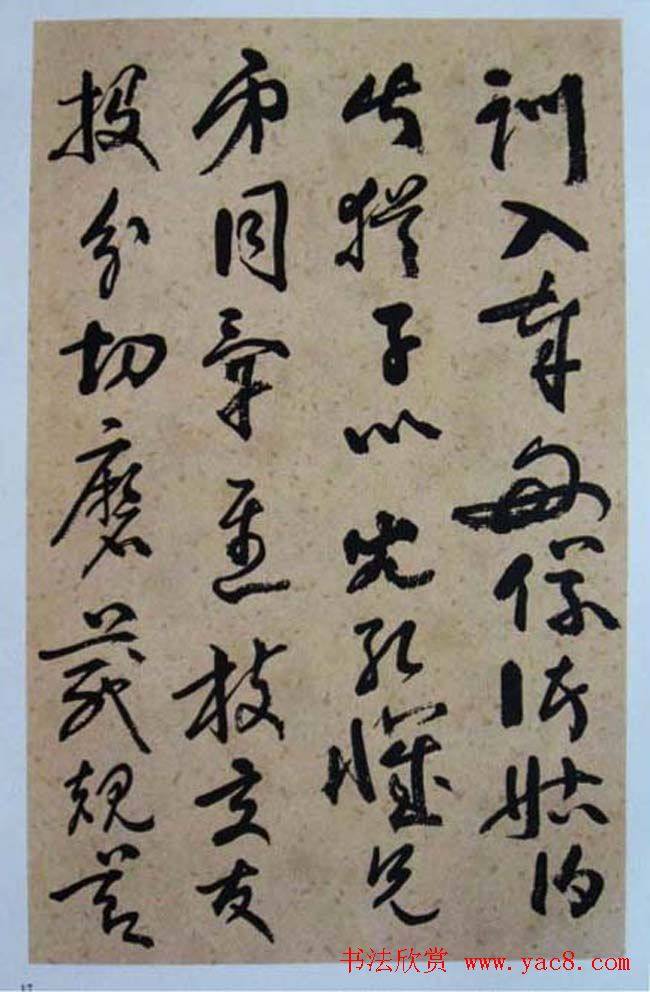 訓入奉母儀諸姑伯
叔猶子比兒孔懷兄
弟同氣連枝交友
投分切磨箴規
书法欣赏 www.yac8.com